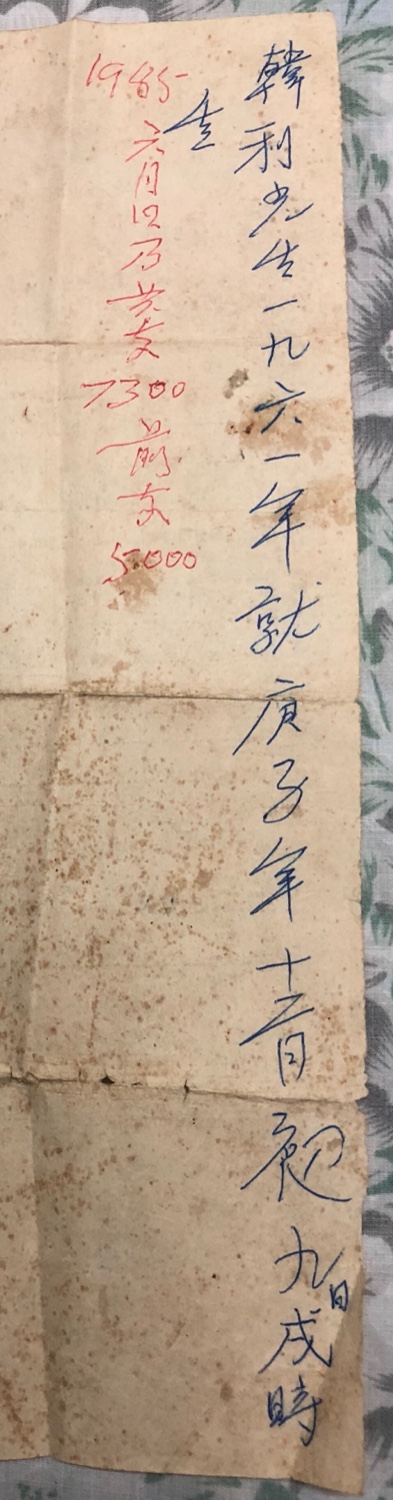 韓利先生一九六一年就庚子年十二月初九日戌時
生
1985 六月口乃共支 7300 前支 5000